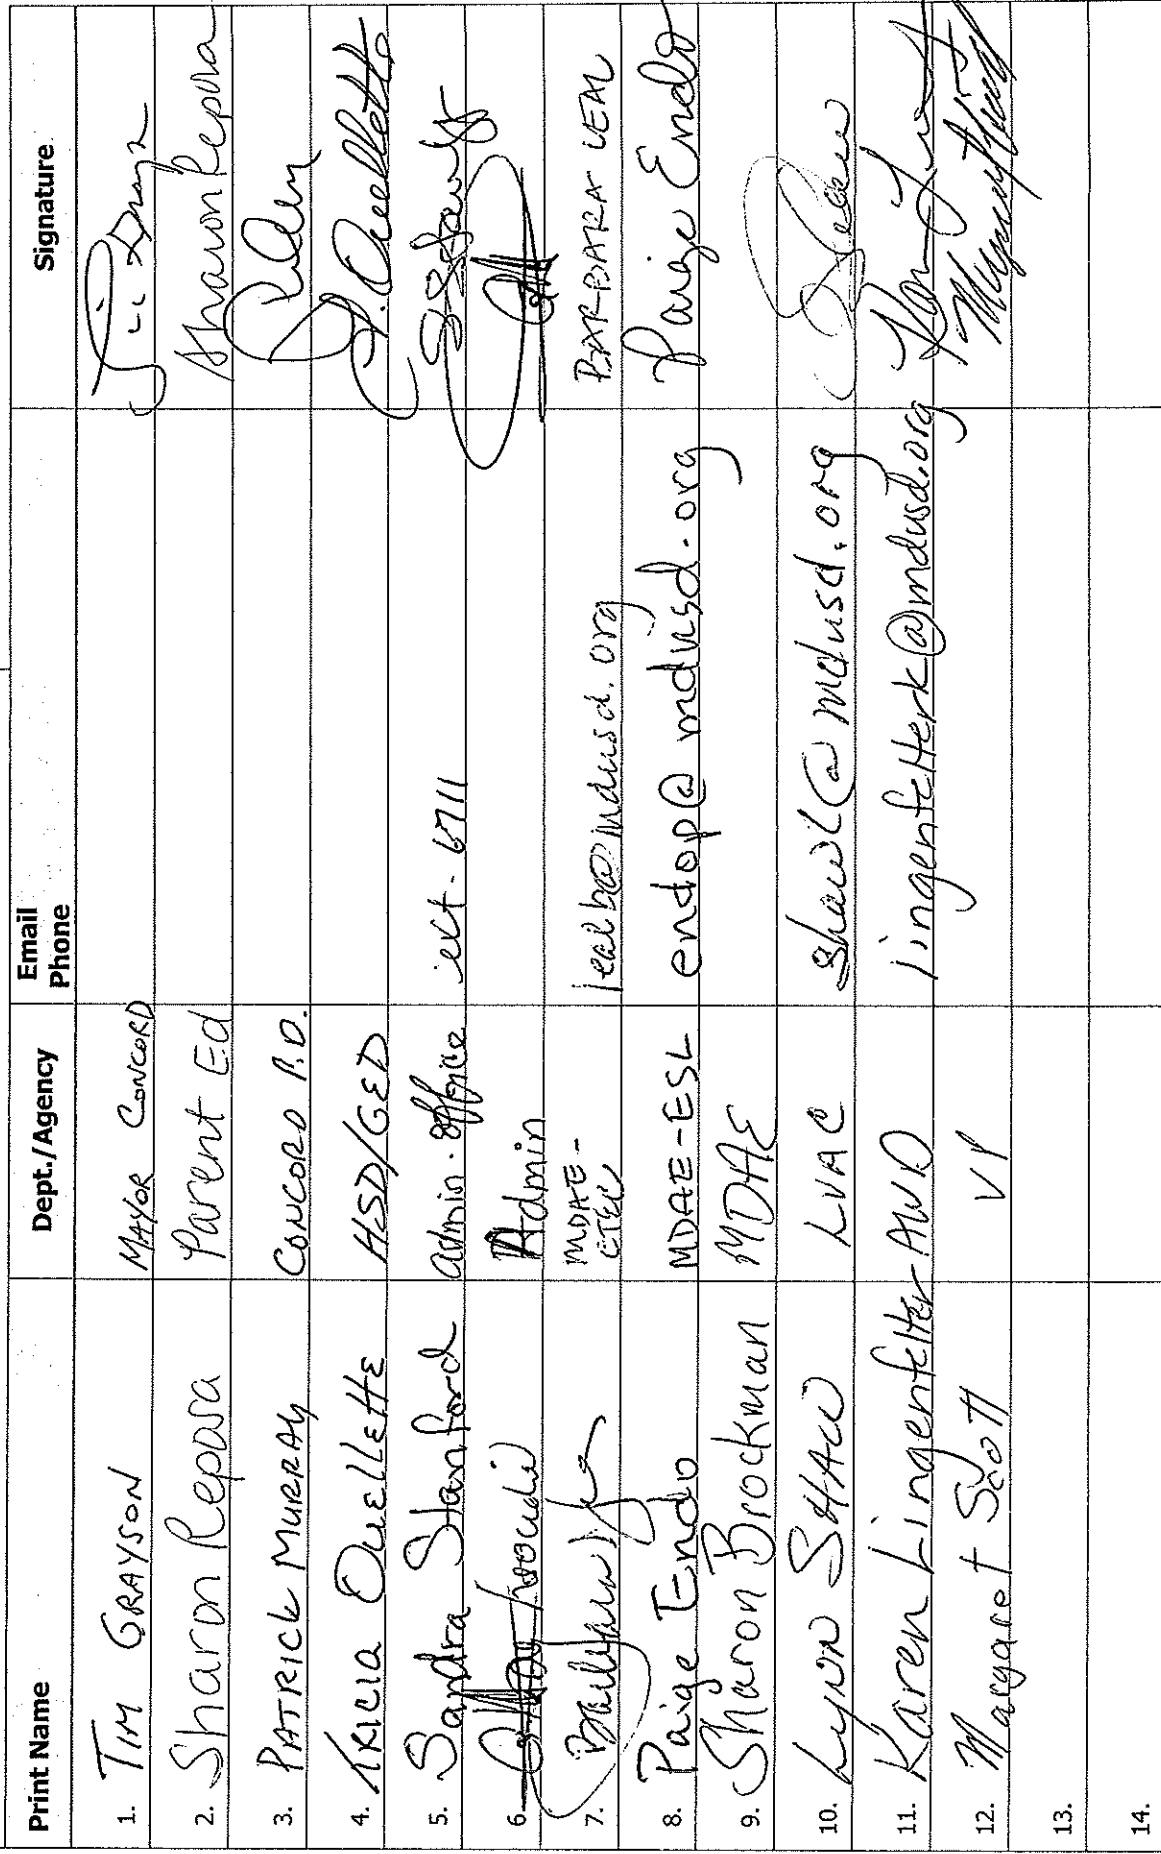 Print Name Dept./Agency Email Phone Signature
1. TIM GRAYSON MAYOR CONCORD
2. Sharon Reposa Parent Ed Sharon Reposa
3. PATRICK MURRAY CONCORD P.D.
4. KRICIA OUELLETTE HSD/GED K. Ouellette
5. Sandra Stanford admin. office ext. 6711
6. Admin
7. MDAE-CTEC lealb@mdusd.org BARBARA LEAL
8. Paige Endo MDAE-ESL endop@mdusd.org Paige Endo
9. Sharon Brockman MDAE
10. Lynn SHAW LVAC shawl@mdusd.org
11. Karen Lingenfelter AWD lingenfelterk@mdusd.org
12. Margaret Scott VP
13.
14.